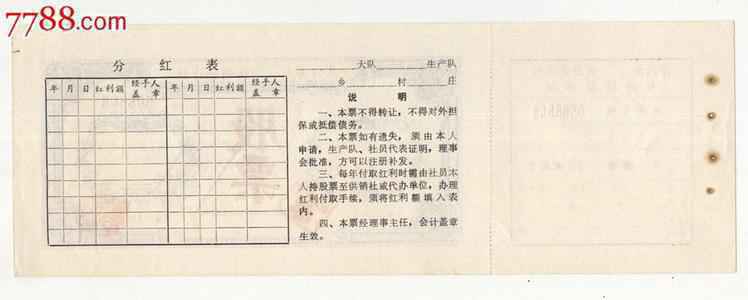 7788.com
分 红 表
年 月 日 红利额 经手人盖章 年 月 日 红利额 经手人盖章
大队 生产队
乡 村 庄
说 明
一、本票不得转让，不得对外担
保或抵偿债务。
二、本票如有遗失，须由本人
申请，生产队、社员代表证明，理事
会批准，方可以注册补发。
三、每年付取红利时需由社员本
人持股票至供销社或代办单位，办理
红利付取手续，须将红利额填入表
内。
四、本票经理事主任，会计盖章
生效。
股票